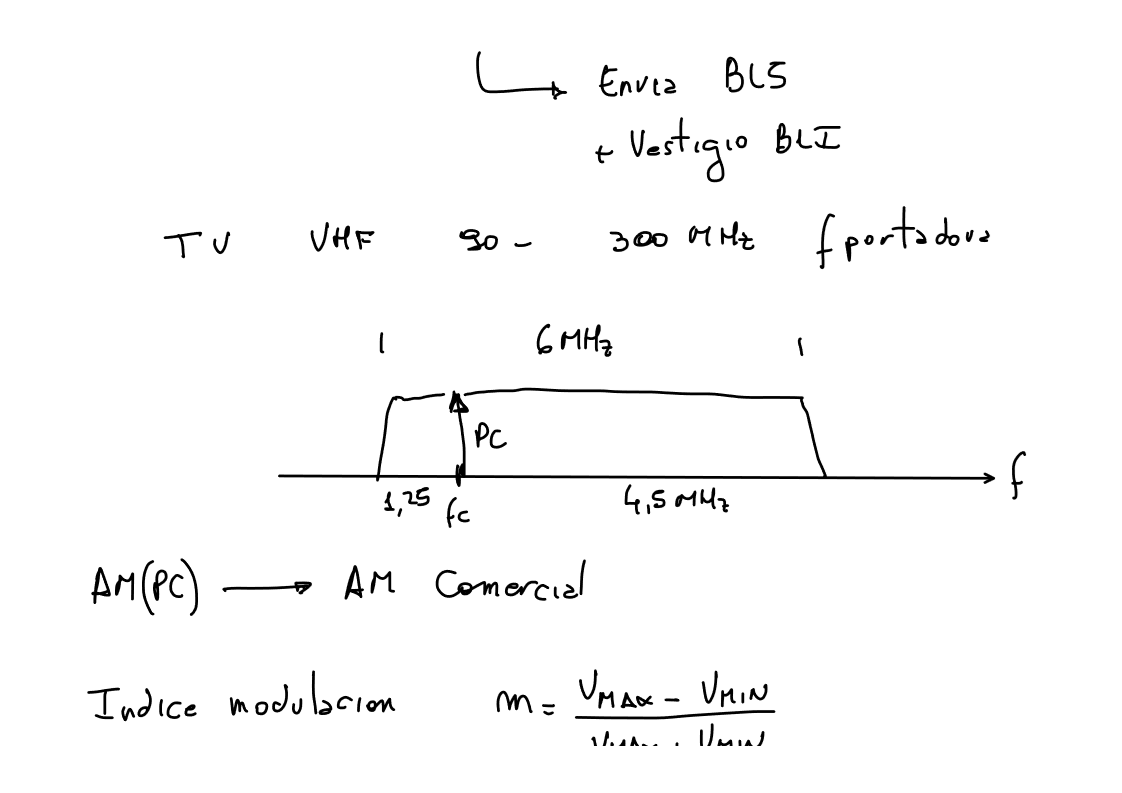 Envia BLS
+ Vestigio BLI
TV VHF 90 - 300 MHz f portadora
6 MHz
PC
f
1,25 fc 4,5 MHz
AM(PC) → AM Comercial
Indice modulacion m = VMAX - VMIN
VMAX + VMIN